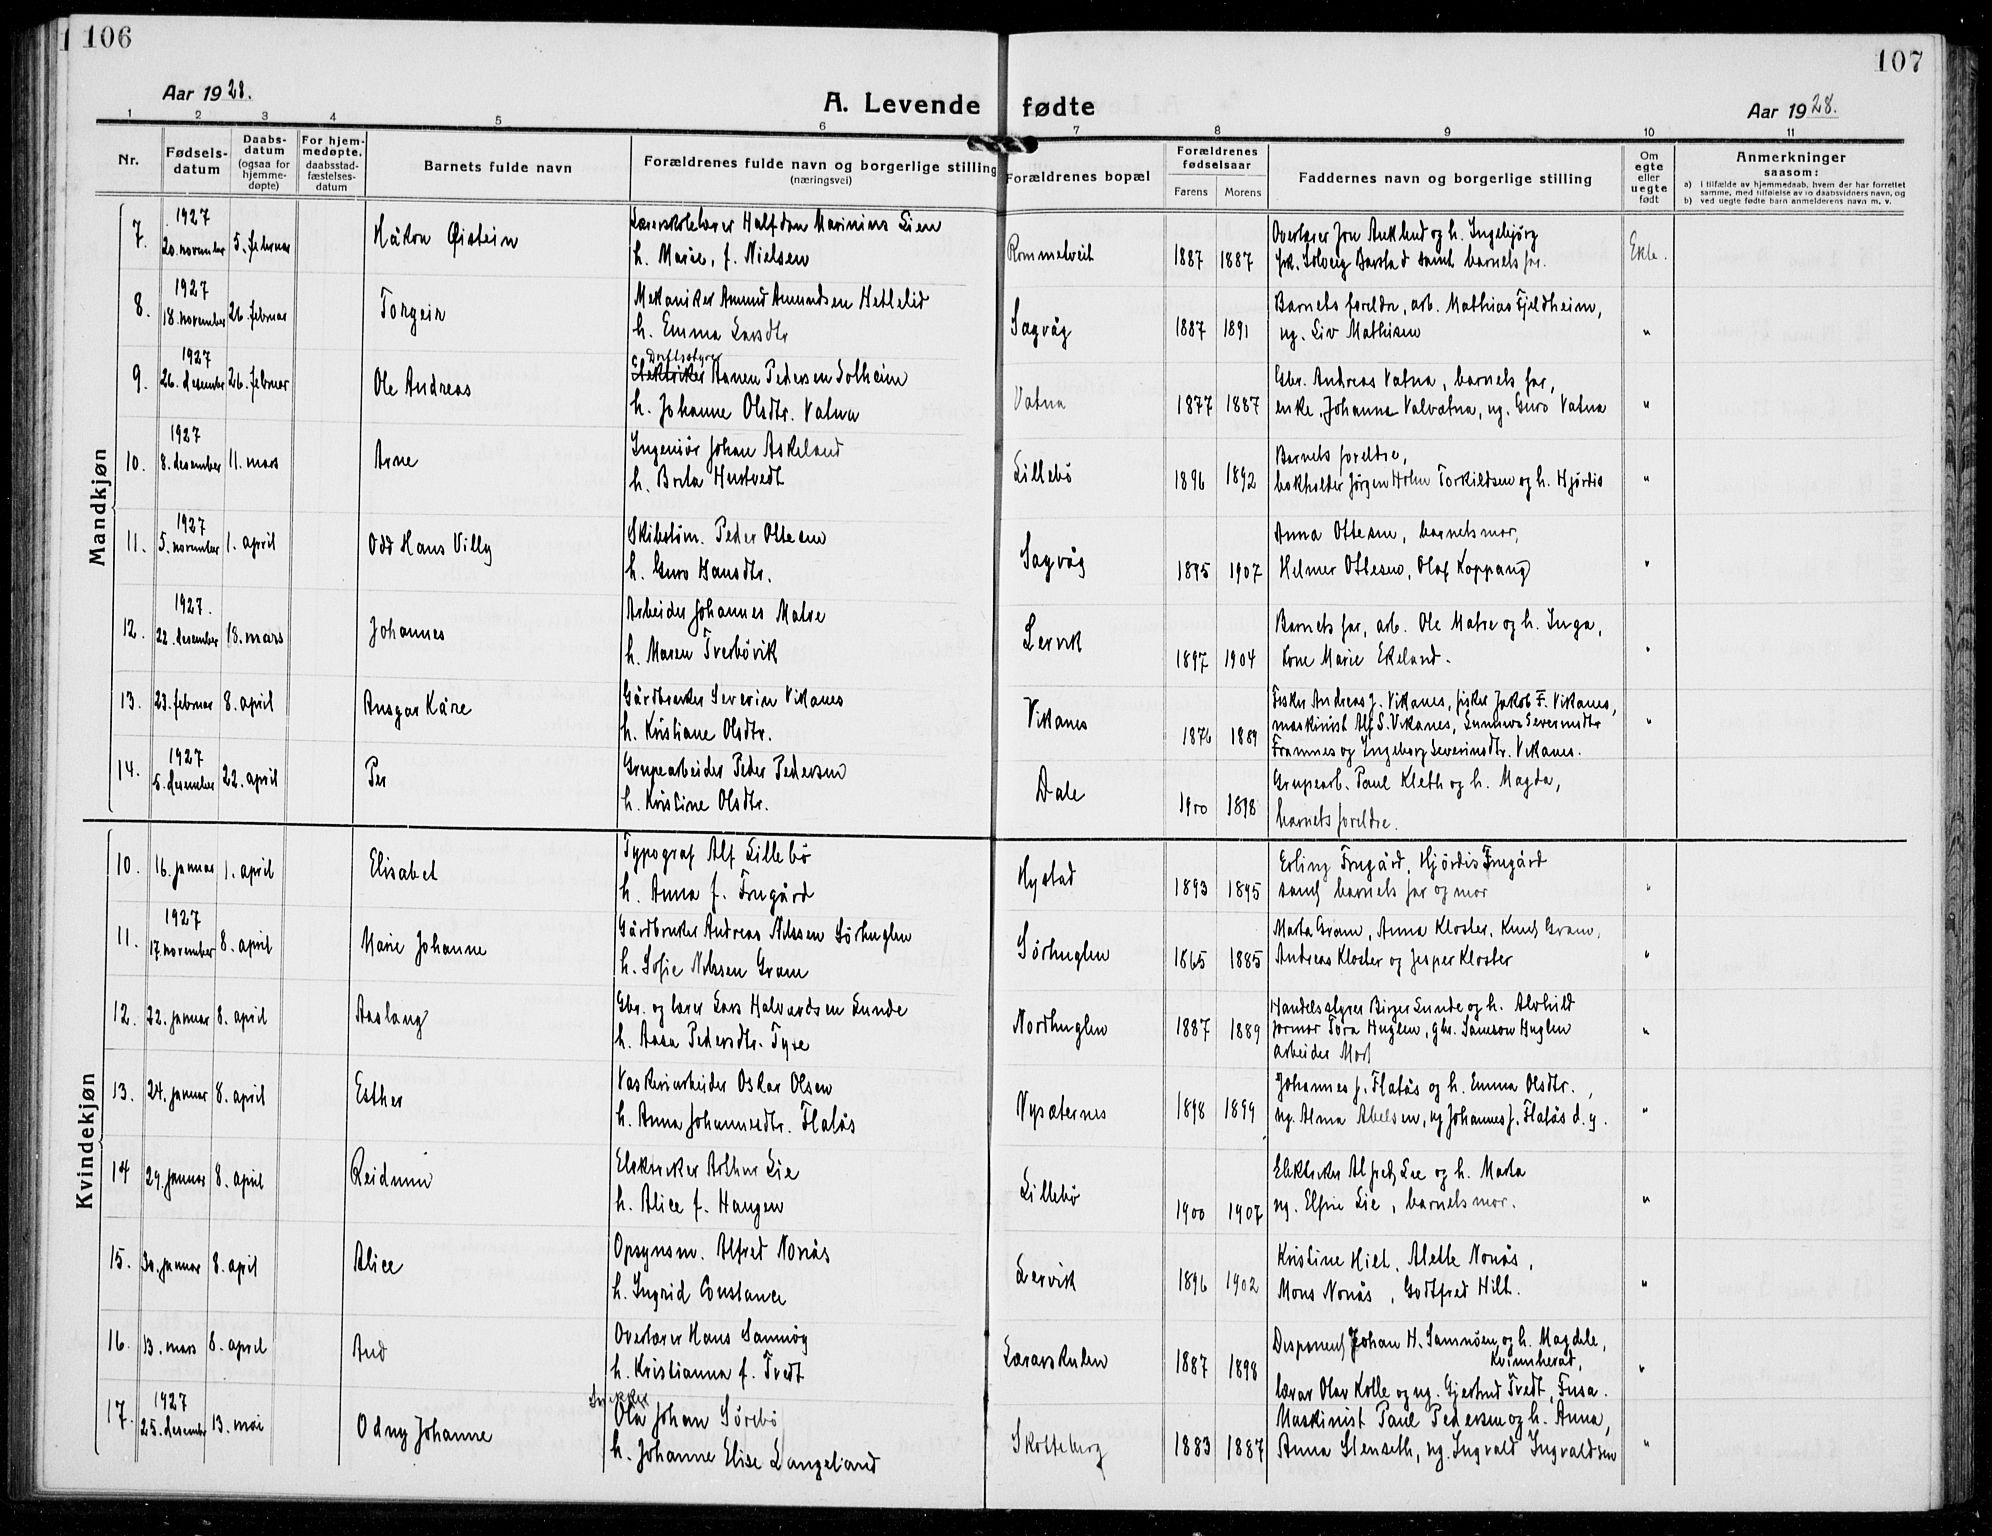 106
107
Aar 1928.
A. Levende fødte
Aar 1928.
1 2 3 4 5 6 7 8 9 10 11
Nr.
Fødselsdatum
Daabsdatum (ogsaa for hjemmedøpte)
For hjemmedøpte, daabsstadfæstelsesdatum
Barnets fulde navn
Forældrenes fulde navn og borgerlige stilling (næringsvei)
Forældrenes bopæl
Forældrenes fødselsaar
Farens Morens
Faddernes navn og borgerlige stilling
Om egte eller uegte født
Anmerkninger saasom:
a) I tilfælde av hjemmedaab, hvem der har forrettet samme, med tilføielse av to daabsvidners navn, og
b) ved uegte fødte barn anmelderens navn m. v.
Mandkjøn
7. 1927 20. november 5. februar Håkon Øistein
Lærerskolelærer Halfdan Marinius Lien
h. Marie, f. Nielsen
Rommetveit 1887 1887
Overlærer Jon Auklend og h. Ingebjørg
frk. Solveig Barstad samt barnets far.
Ekte.
8. 1927 18. november 26. februar Torgeir
Mekaniker Amund Amundsen Hetlelid
h. Emma Larsdtr
Sagvåg 1887 1891
Barnets foreldre, arb. Mathias Fjeldheim,
ug. Liv Mathisen
"
9. 1927 26. desember 26. februar Ole Andreas
Driftsstyrer
Elektriker Aanen Pedersen Solheim
h. Johanne Olsdtr. Vatna
Vatna 1877 1887
Gbr. Andreas Vatna, barnets far,
enke Johanna Valvatna, ug. Guro Vatna
"
10. 1927 8. desember 11. mars Arne
Ingeniør Johan Askeland
h. Borta Hustvedt
Lillebø 1896 1892
Barnets foreldre,
bokholder Jørgen Holm Torkildsen og h. Hjørdis
"
11. 1927 5. november 1. april Odd Hans Villy
Skibstøm. Peder Ottesen
h. Guro Hansdtr.
Sagvåg 1895 1907
Anna Ottesen, barnets mor,
Helmer Ottesen, Olaf Koppang
"
12. 1927. 22. desember 18. mars Johannes
Arbeider Johannes Matre
h. Maren Tverbøvik
Lervik 1897 1904
Barnets far, arb. Ole Matre og h. Inga,
kone Marie Ekeland.
"
13. 23. februar 8. april Ansgar Kåre
Gårdbruker Severin Vikanes
h. Kristiane Olsdtr.
Vikanes 1876 1889
Fisker Andreas J. Vikanes, fisker Jakob F. Vikanes,
maskinist Alf S. Vikanes, Sunniva Severinsdtr
Framnes og Ingeborg Severinsdtr. Vikanes.
"
14. 1927 5. desember 22. april Per
Grupearbeider Peder Pedersen
h. Kristine Olsdtr.
Dale 1900 1898
Grupearb. Paul Kleth og h. Magda,
barnets foreldre.
Kvindekjøn
10. 16. januar 1. april Elisabet
Typograf Alf Lillebø
h. Anna f. Frugård
Hystad 1893 1895
Erling Frugård, Hjørdis Frugård
samt barnets far og mor
"
11. 1927 17. november 8. april Marie Johanne
Gårdbruker Andreas Nilssen Sørhuglen
h. Sofie Nilssen Gram
Sørhuglen 1865 1885
Marta Gram, Anna Kloster, Knut Gram,
Andreas Kloster og Jesper Kloster
"
12. 22. januar 8. april Aaslaug
Gbr. og lærer Lars Halvardsen Lunde
h. Aasa Pedersdtr. Tyse
Nordhuglen 1887 1889
Handelsstyrer Birger Lunde og h. Alvhild
farmor Tora Huglen, gbr. Samson Huglen
arbeider Mort
"
13. 24. januar 8. april Esther
Vaskeriarbeider Oskar Olsen
h. Anna Johannesdtr. Flatås
Nysæternes 1898 1899
Johannes J. Flatås og h. Emma Olsdtr.,
ug. Alma Abelsen, ug Johannes J. Flatås d. y.
"
14 29. januar 8. april Reidunn
Elektriker Arthur Lie
h. Alice f. Haugen
Lillebø 1900 1907
Elektriker Alfred Lie og h. Marta
ug. Elfrie Lie, barnets mor.
"
15. 30. januar 8. april Alice
Opsynsm. Alfred Nonås
h. Ingrid Constance
Lervik 1896 1902
Kristine Hilt, Alette Nonås,
Mons Nonås, Godtfred Hilt.
"
16. 13. mars 8. april Aud
Overlærer Hans Samnøy
h. Kristianna f. Tvedt
Lærarskulen 1887 1898
Disponent Johan H. Samnøen og h. Magdele,
Kvinnherad,
lærar Olav Kolle og ug. Gjertrud Tvedt, Fusa.
"
17. 1927 25. desember 13. mai Odny Johanne
Snekker
Ola Johan Sørebø
h. Johanne Elise Langeland
Skotteberg 1883 1887
Maskinist Paul Pedersen og h. Anna,
Anna Stenseth, ug. Ingvald Ingvaldsen
"